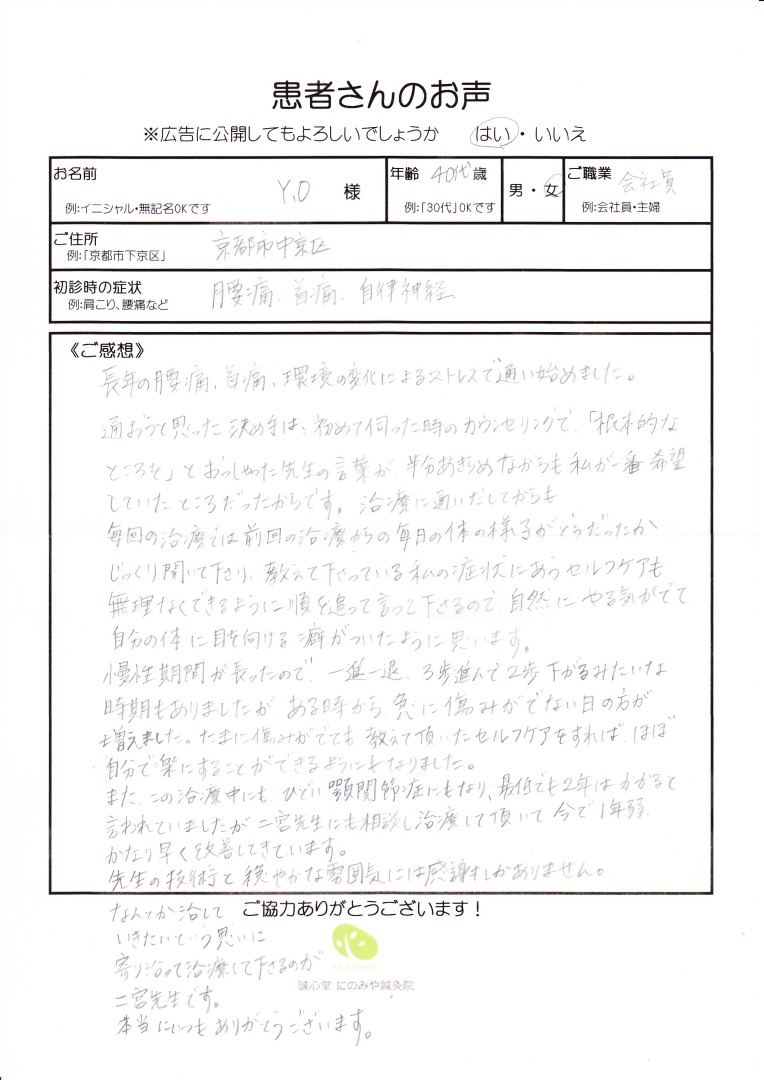 患者さんのお声
※広告に公開してもよろしいでしょうか はい・いいえ
お名前 Y.O 様 例:イニシャル・無記名OKです
年齢 40代 歳 例:「30代」OKです
男・女
ご職業 会社員 例:会社員・主婦
ご住所 京都市中京区
例:「京都市下京区」
初診時の症状 腰痛、首痛、自律神経
例:肩こり、腰痛など
《ご感想》
長年の腰痛、首痛、環境の変化によるストレスで通い始めました。
通おうと思った決め手は、初めて伺った時のカウンセリングで、「根本的な
ところを」とおっしゃった先生の言葉が、半分あきらめながらも私が一番希望
していたところだったからです。治療に通いだしてからも
毎回の治療では前回の治療からの毎日の体の様子がどうだったか
じっくり聞いて下さり、教えて下さっている私の症状にあうセルフケアも
無理なくできるように順を追って言って下さるので、自然にやる気がでて
自分の体に目を向ける癖がついたように思います。
慢性期間が長ったので、一進一退、3歩進んで2歩下がるみたいな
時期もありましたが、ある時から、急に傷みがでない日の方が
増えました。たまに傷みがでても、教えて頂いたセルフケアをすれば、ほぼ
自分で楽にすることができるようにもなりました。
また、この治療中にも、ひどい顎関節症にもなり、最低でも2年はかかると
言われていましたが二宮先生にも相談し治療して頂いて今で1年弱、
かなり早く改善してきています。
先生の技術と穏やかな雰囲気には感謝しかありません。
なんとか治して
いきたいという思いに
寄り沿って治療して下さるのが
二宮先生です。
本当にいつもありがとうございます。
ご協力ありがとうございます！
誠心堂 にのみや鍼灸院